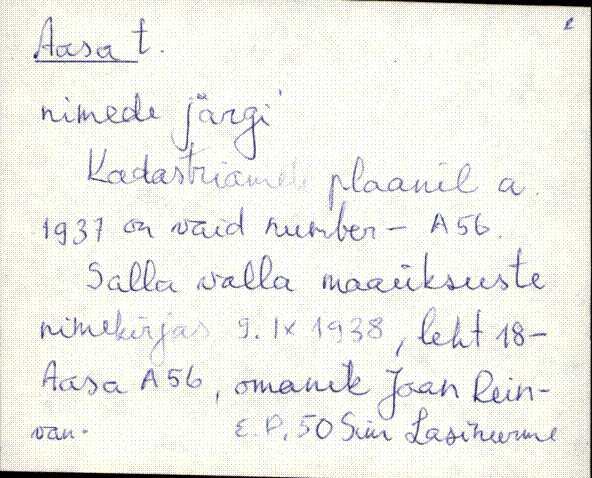 Aasa t.
nimede järgi
Kadastriameti plaanil a.
1937 on vaid number – A56.
Salla valla maaüksuste
nimekirjas 9. IX 1938, leht 18 –
Aasa A56, omanik Jaan Rein-
van. E.P. 50 Sim Lasinurme